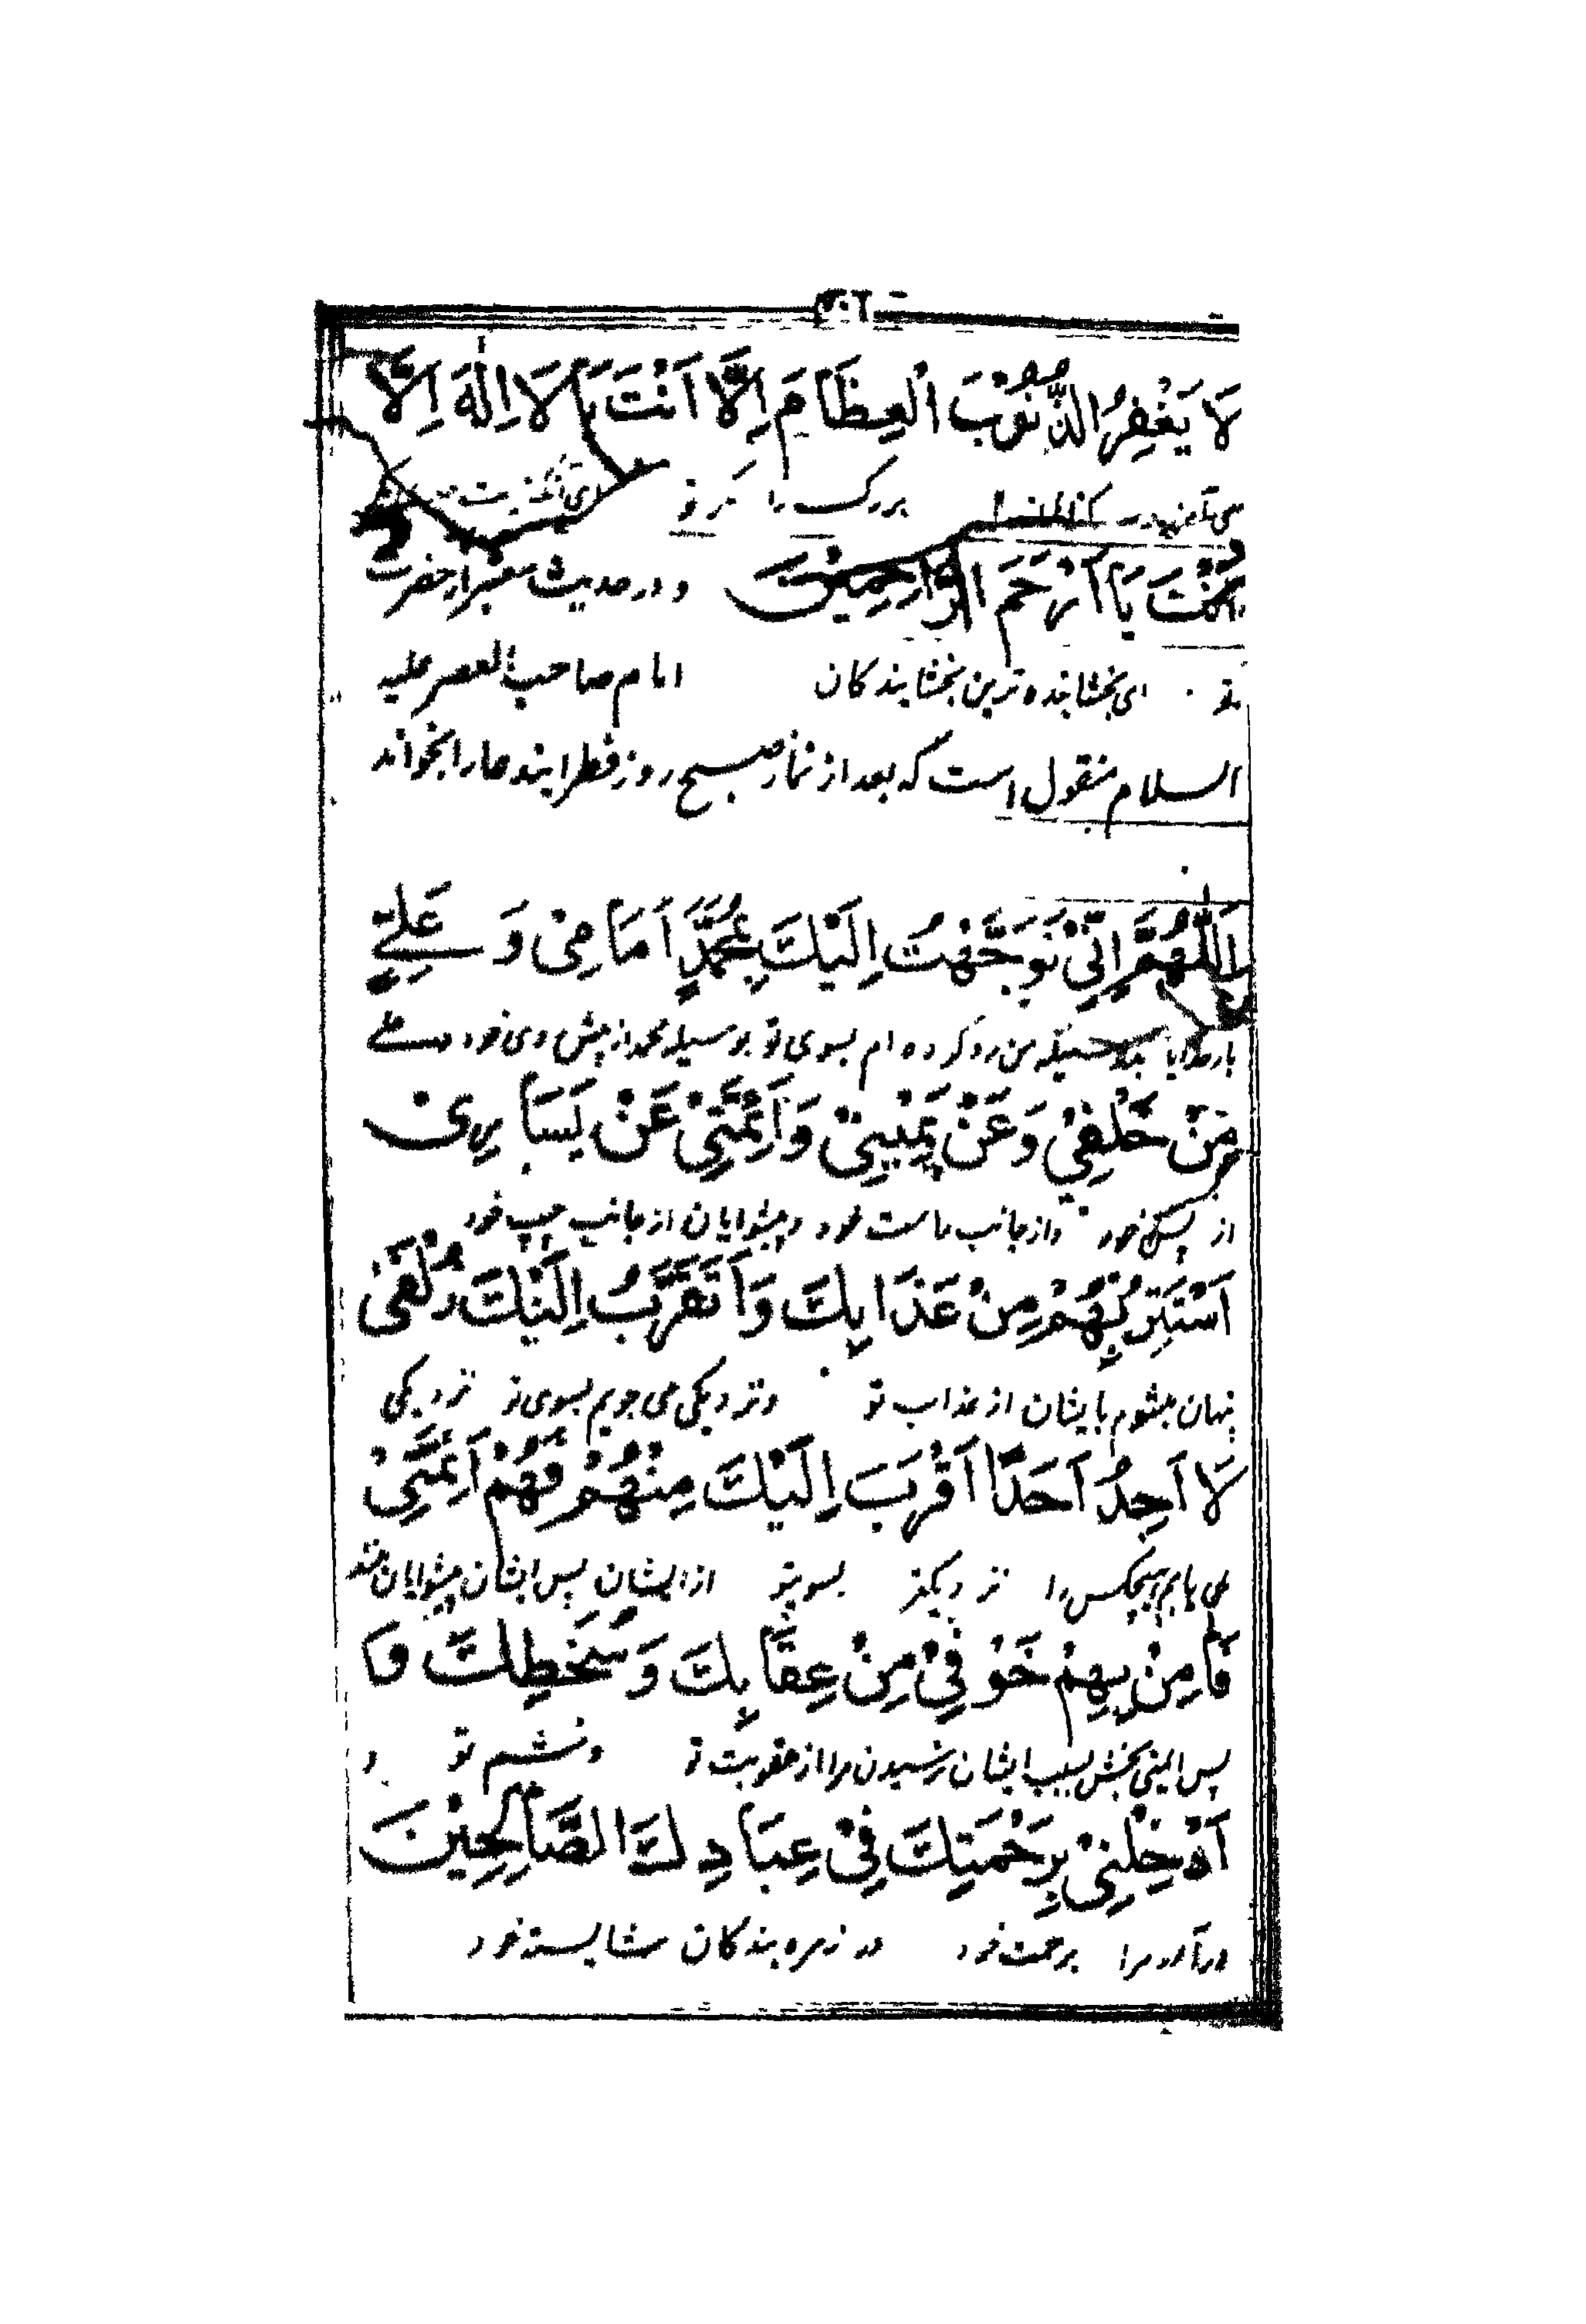 لَا يَغْفِرُ الذُّنُوْبَ الْعِظَامَ اِلَّا اَنْتَ يَا لَا اِلٰهَ اِلَّا
بزرك را تو
اَنْتَ يَا اَرْحَمَ الرَّاحِمِيْنَ و در حدیث معتبر از حضرت
تو ای بخشاینده ترین بخشایندکان امام صاحب العصر علیه
السلام منقول است که بعد از نماز صبح روز فطر ایندعا را بخواند
اَللّٰهُمَّ اِنِّيْ تَوَجَّهْتُ اِلَيْكَ بِمُحَمَّدٍ اَمَامِيْ وَ عَلِيٍّ
بارخدایا من رو کرده ام بسوی تو بوسیله محمد از پیش روی خود و علی
مِنْ خَلْفِيْ وَعَنْ يَمِيْنِيْ وَاَئِمَّتِيْ عَنْ يَسَارِيْ
از پس خود واز جانب راست خود و پیشوایان از جانب چپ خود
اَسْتَتِرُ بِهِمْ مِنْ عَذَابِكَ وَاَتَقَرَّبُ اِلَيْكَ زُلْفٰى
پنهان میشوم بایشان از عذاب تو ونزدیکی می جویم بسوی تو نزدیکی
لَا اَجِدُ اَحَدًا اَقْرَبَ اِلَيْكَ مِنْهُمْ فَهُمْ اَئِمَّتِيْ
نمی یابم هیچکس را نزدیکتر بسویتو از ایشان پس ایشان پیشوایان منند
فَاٰمِنْ بِهِمْ خَوْفِيْ مِنْ عِقَابِكَ وَسَخَطِكَ وَ
پس ایمنی بخش بسبب ایشان ترسیدن مرا از عقوبت تو وخشم تو و
اَدْخِلْنِيْ بِرَحْمَتِكَ فِيْ عِبَادِكَ الصَّالِحِيْنَ
درآور مرا برحمت خود در زمره بندکان شایسته خود